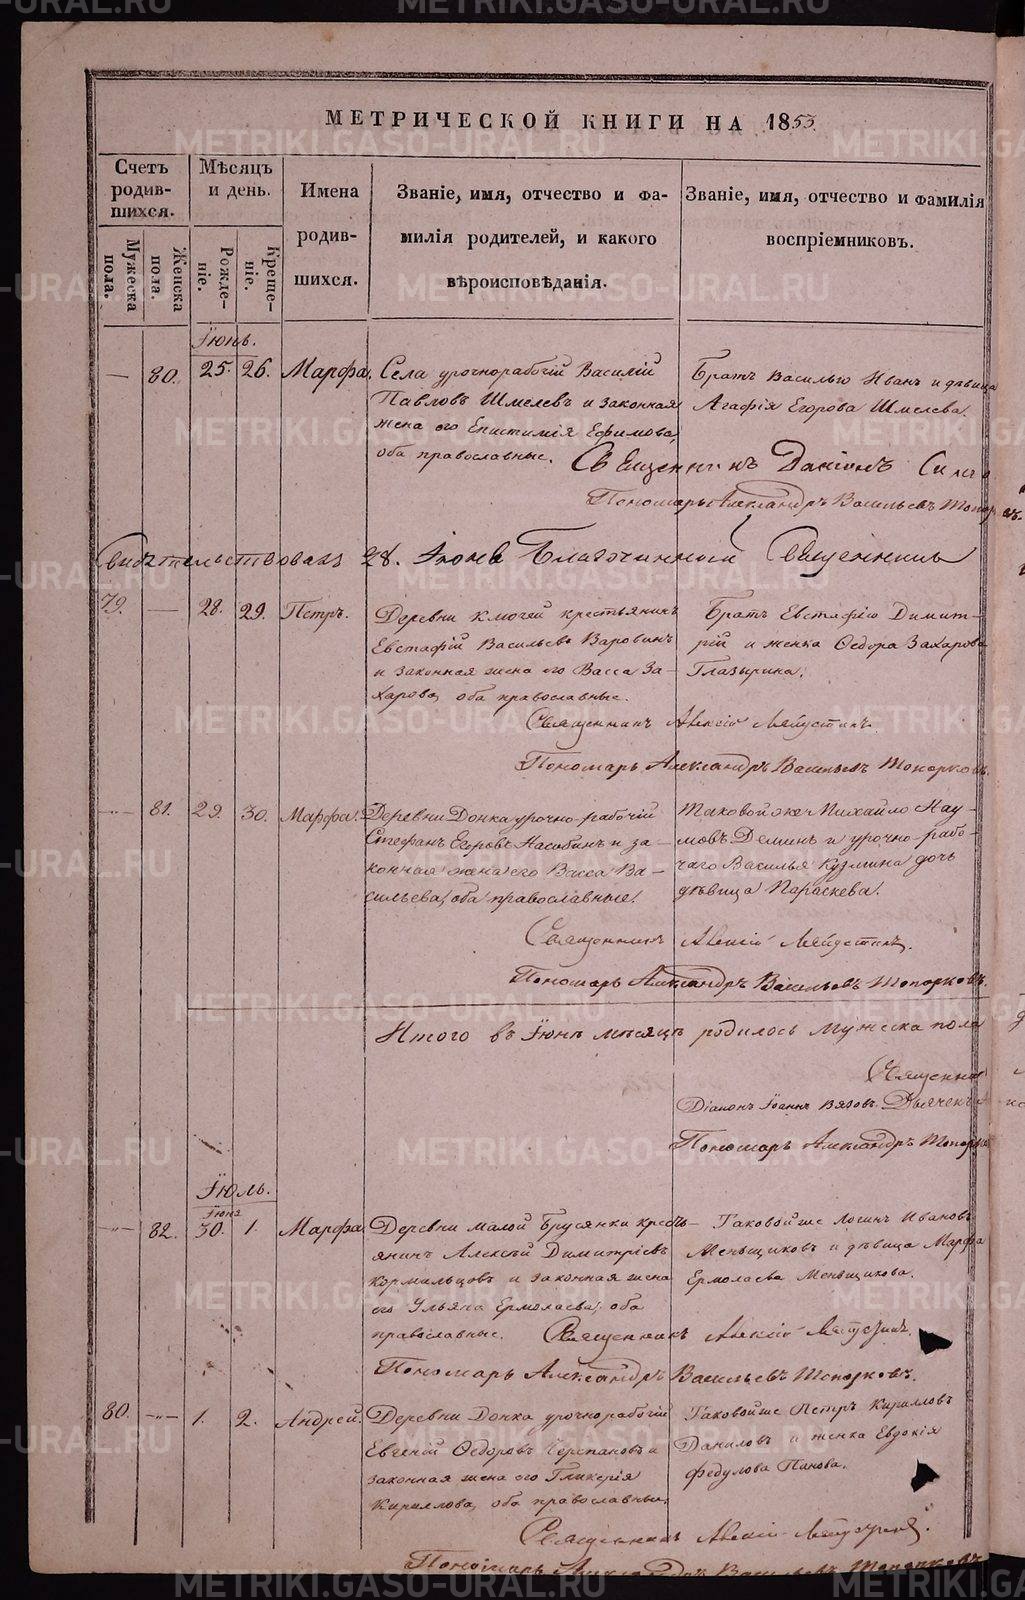 МЕТРИЧЕСКОЙ КНИГИ НА 1853
Счетъ родив-шихся.
Мужеска пола.
Женска пола.
Мѣсяцъ и день.
Рожде-ніе.
Креще-ніе.
Имена родив-шихся.
Званіе, имя, отчество и фа-
милія родителей, и какого
вѣроисповѣданія.
Званіе, имя, отчество и фамилія
воспріемниковъ.
Іюнь.
— 80. 25. 26. Марфа.
Села урочнорабочій Василій
Павловъ Шмелевъ и законная
жена его Епистимія Ефимова,
оба православные.
Братъ Василью Иванъ и дѣвица
Агафія Егорова Шмелева.
Священникъ
Пономарь Александръ Васильевъ Топорковъ.
Свидѣтельствовалъ 28. Іюня Благочинный Священникъ
79. — 28. 29. Петръ.
Деревни Ключей крестьянинъ
Евстафій Васильевъ Варовинъ
и законная жена его Васса За-
харова, оба православные.
Братъ Евстафію Димит-
рій и женка Ѳедора Захарова
Глазырина.
Священникъ Алексій
Пономарь Александръ Васильевъ Топорковъ.
81. 29. 30. Марфа.
Деревни Донка урочно-рабочій
Стефанъ Егоровъ и за-
конная жена его Васса Ва-
сильева, оба православные.
Таковой же Михайло Нау-
мовъ Деминъ и урочно-рабо-
чаго Василья Кузмина дочь
дѣвица Параскева.
Священникъ Алексій
Пономарь Александръ Васильевъ Топорковъ.
Итого въ Іюнѣ мѣсяцѣ родилось мужеска пола
Священник
Діаконъ Іоаннъ Вязовъ. Дьячекъ
Пономарь Александръ Топорко
Іюль.
Іюня
82. 30. 1. Марфа
Деревни малой Брусянки кресть-
янинъ Алексѣй Димитріевъ
Кормильцовъ и законная жена
его Ульяна Ермолаева, оба
православные.
Таковой же Логинъ Ивановъ
Меньщиковъ и дѣвица Марфа
Ермолаева Меньщикова.
Священникъ Алексій
Пономарь Александръ Васильевъ Топорковъ.
80. 1. 2. Андрей.
Деревни Донка урочнорабочій
Евгеній Ѳедоровъ Черепановъ и
законная жена его Гликерія
Кириллова, оба православные.
Таковой же Петръ Кирилловъ
Даниловъ и женка Евдокія
Федулова Панова.
Священникъ Алексій
Пономарь Александръ Васильевъ Топорковъ
METRIKI.GASO-URAL.RU